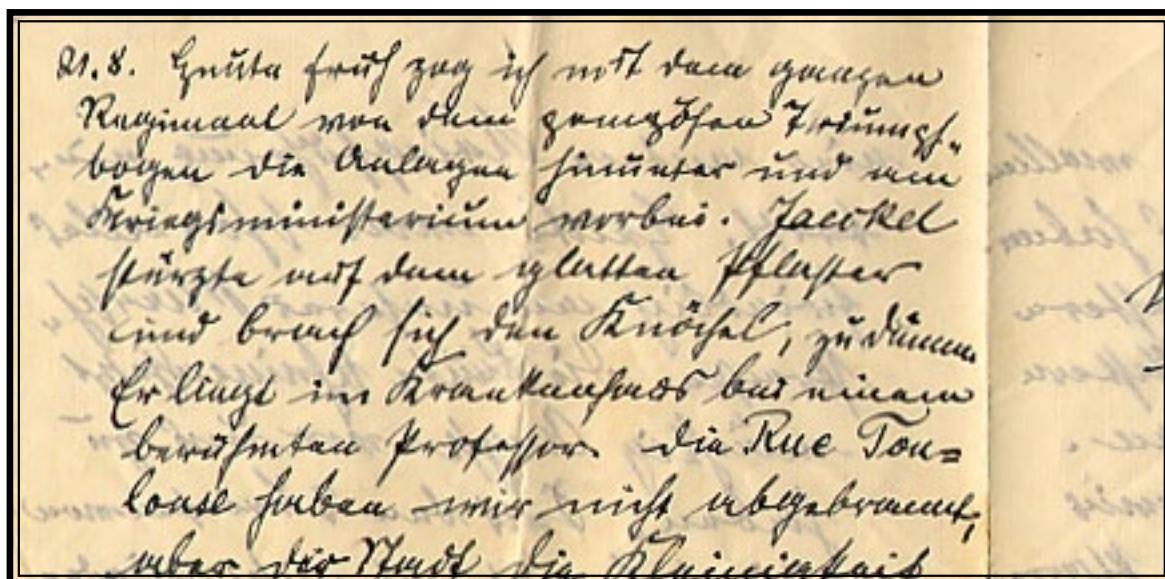 21.8. Heute früh zog ich mit dem ganzen
Regiment von dem pompösen Triumph-
bogen die Anlagen hinunter und am
Kriegsministerium vorbei. Jaeckel
stürzte auf dem glatten Pflaster
und brach sich den Knöchel, zu dumm
Er liegt im Krankenhaus bei einem
berühmten Professor. Die Rue Tou=
louse haben wir nicht abgebrannt,
aber der Stadt die Kleinigkeit